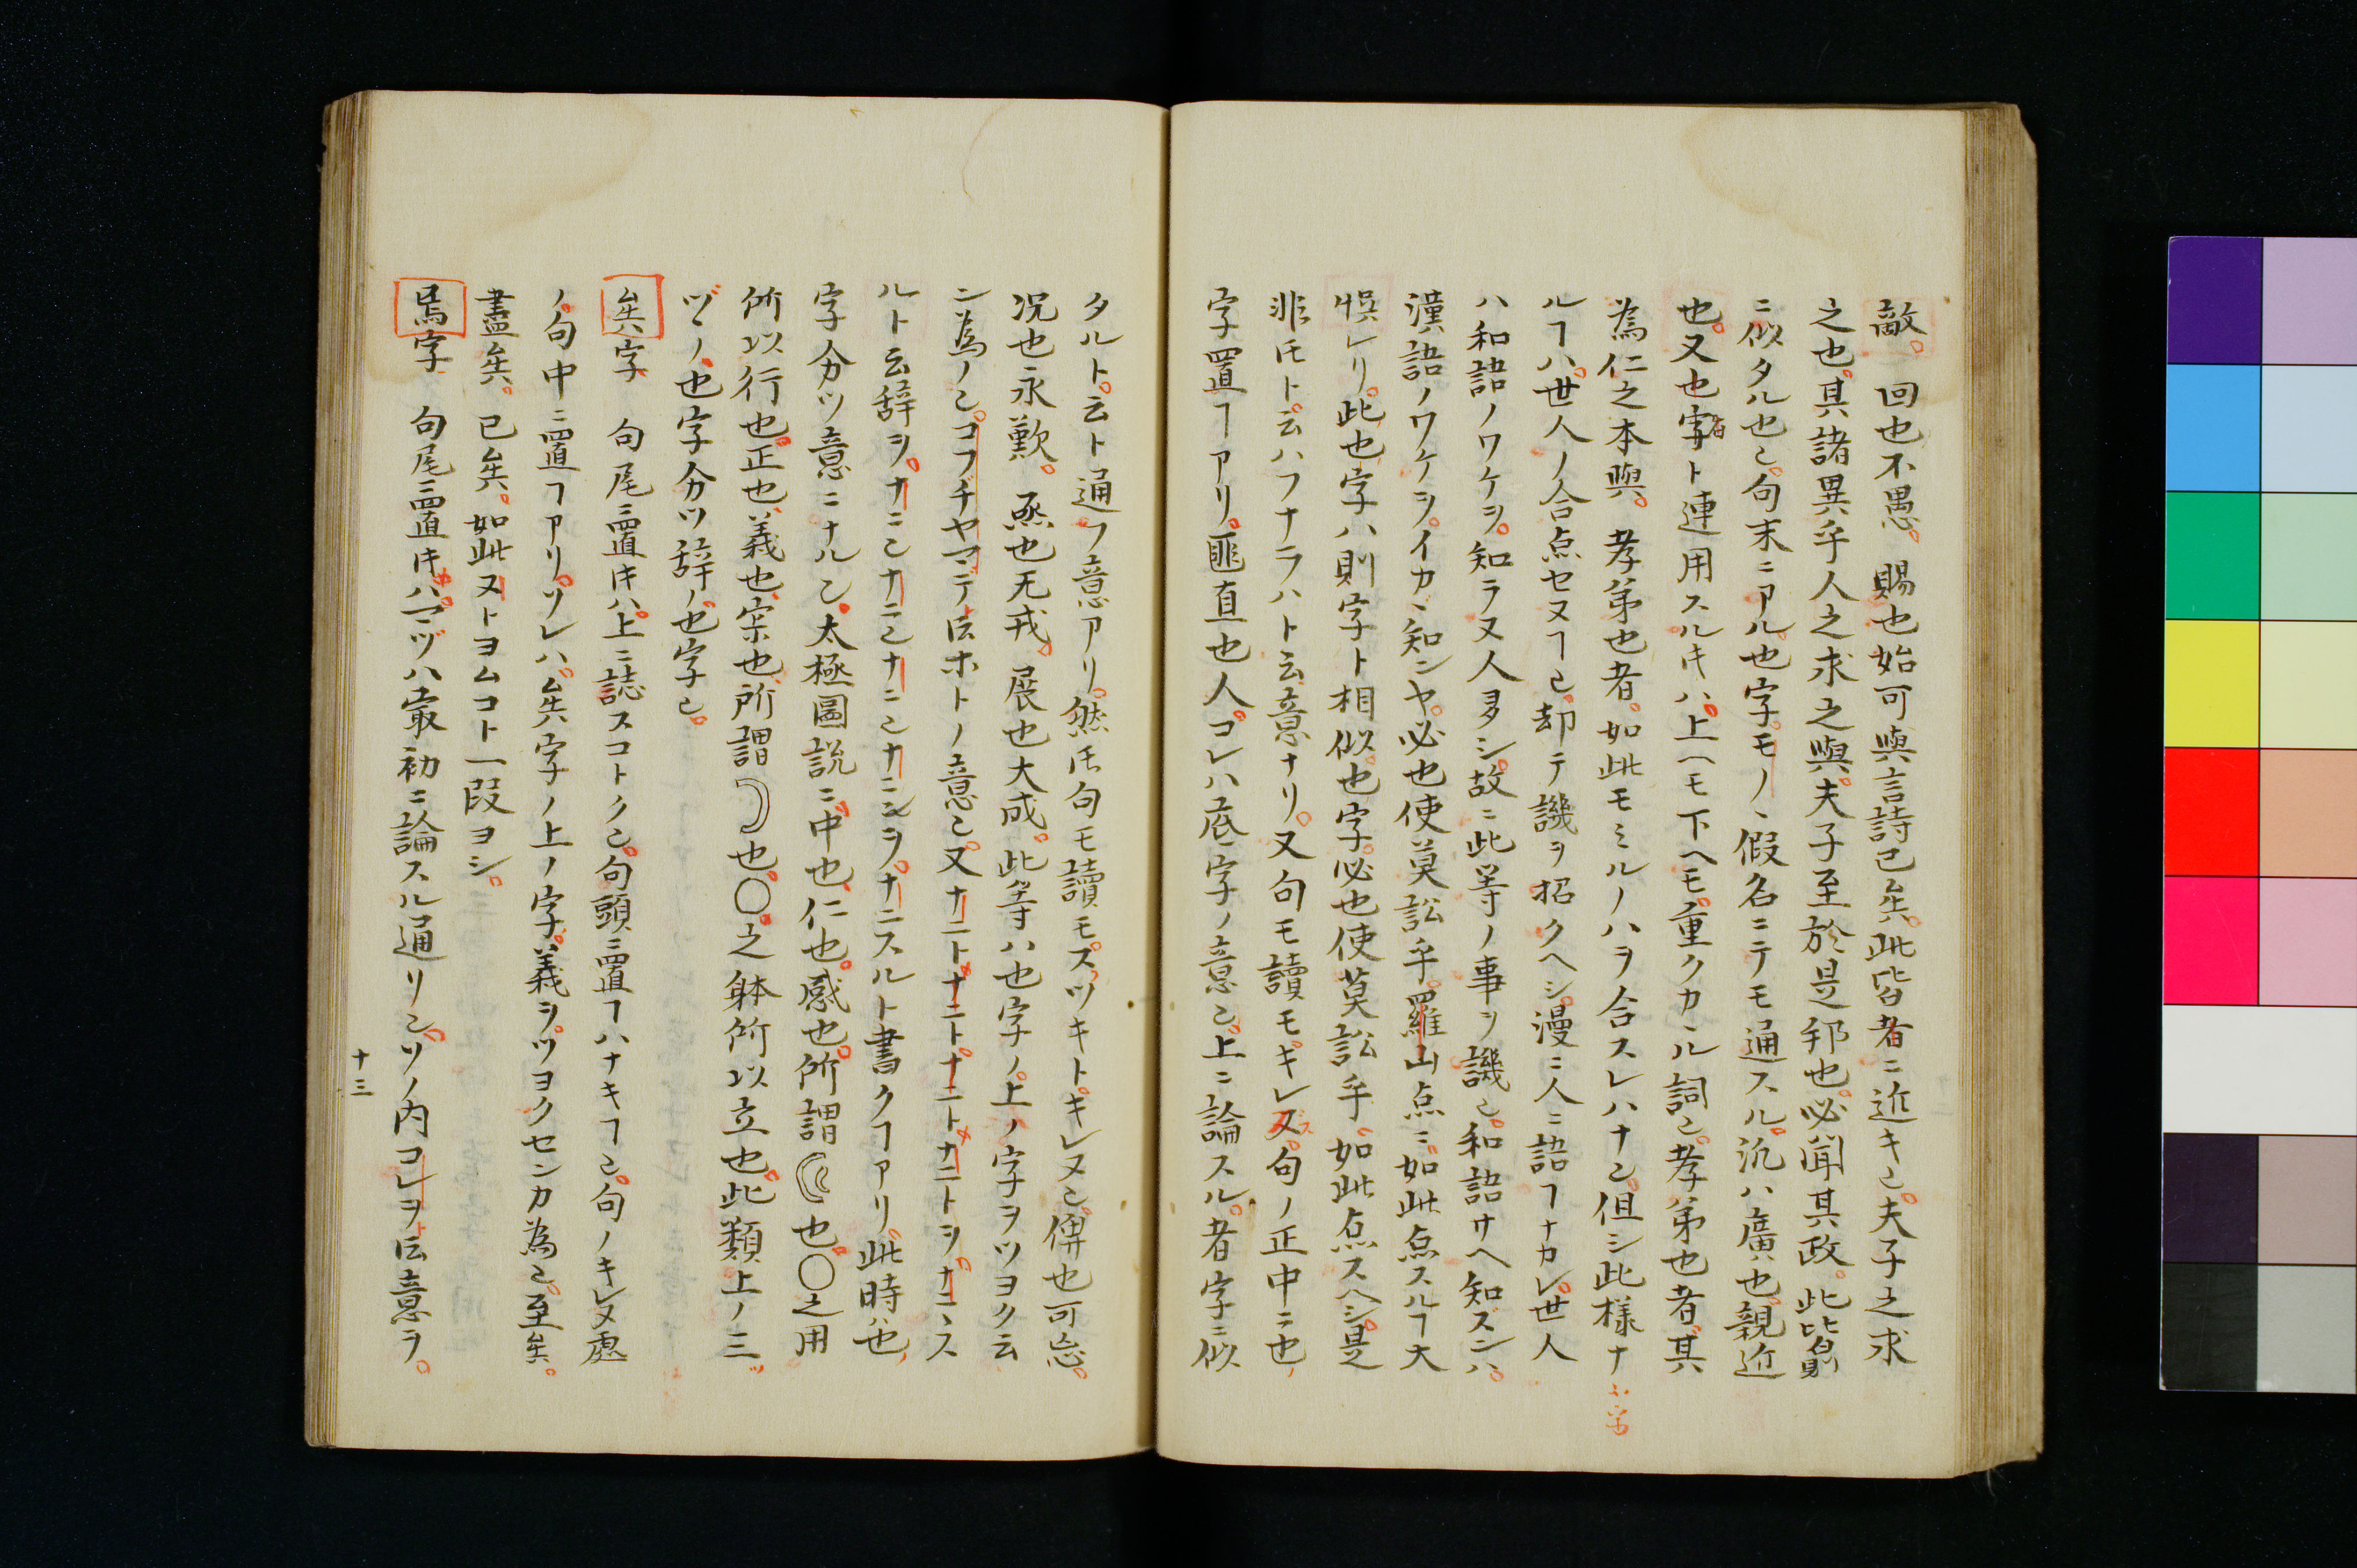 敵。回也不愚。賜也始可與言詩已矣。此皆者ニ近キ𪜈。夫子之求
之也。其諸異乎人之求之與。夫子至於是邦也。必聞其政。此皆則
ニ似タル也𪜈。句末ニアル也字。モノヽ假名ニテモ通スル。汎ハ廣也。親近
也。又也字者ト連用スルキハ。上ヘモ下ヘモ。重クカヽル詞𪜈。孝弟也者。其
為仁之本與。孝弟也者。如此モミルノハヲ合スレハナ𪜈。但シ此様ナ
ルヿハ。世人ノ合点セヌヿ𪜈。却テ譏ヲ招クヘシ。漫ニ人ニ語ヿナカレ。世人
ハ和語ノワケヲ。知ラヌ人多シ。故ニ此等ノ事ヲ譏𪜈。和語サヘ知ズンハ。
漢語ノワケヲ。イカヽ知ンヤ。必也使莫訟乎。羅山点ニ。如此点スルヿ大
悞レリ。此也字ハ則字ト相似。也字。必也使莫訟乎。如此点スヘシ。是
非氏ト。云ハフナラハト云意ナリ。又句モ讀モ。キレヌ。句ノ正中ニ也
字置ヿアリ。匪直也人。コレハ底字ノ意𪜈。上ニ論スル。者字ニ似
タルト。云ト通フ意アリ。然𪜈句モ讀モ。スツキト。キレヌ𪜈。倂也可忘。
况也永歎。烝也无戎。展也大成。此等ハ也字ノ。上ノ字ヲツヨク云
ン為ノ𪜈。コフヂヤマデト云ホトノ意𪜈。又ナニトナニト。ナニトナニトヲ。ナニヽス
ルト云辞ヲ。ナニ𪜈ナニ𪜈ナニ𪜈ナニ𪜈ヲ。ナニスルト書クヿアリ。此時ハ也
字分ツ意ニナル𪜈。太極圖説ニ。中也。仁也。感也。所謂 也。〇之用
所以行也。正也。義也。宗也。所謂 也。〇之躰所以立也。此類上ノ三
ヅヽノ也字分ツ辞ノ也字𪜈。
矣字 句尾ニ置𪜈ハ。上ニ誌スコトク𪜈。句頭ニ置ヿハナキヿ𪜈。句ノキレヌ處
ノ句中ニ置ヿアリ。ソレハ。矣字ノ上ノ字義ヲ。ツヨクセンカ為𪜈。至矣。
盡矣。已矣。如此ヌトヨムコト一段ヨシ。
焉字 句尾ニ置𪜈ハ。マヅハ最初ニ論スル通リ𪜈。ソノ内コレヲト云意ヲ。
十三